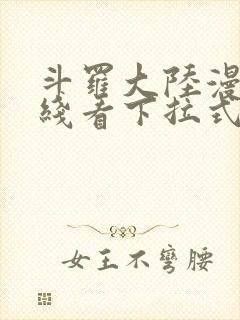 斗羅大陸漫
綫看下拉式
女王不彎腰